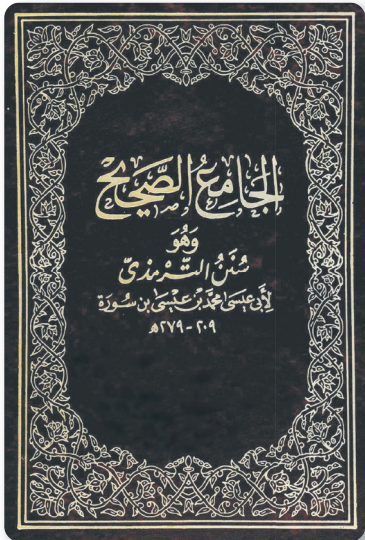 الجَامِعُ الصَّحِيحُ
وَهُوَ
سُنَنُ التِّرْمِذِيّ
لِأَبِي عِيسَى مُحَمَّد بْن عِيسَى بن سَورَة
٢٠٩ - ٢٧٩هـ